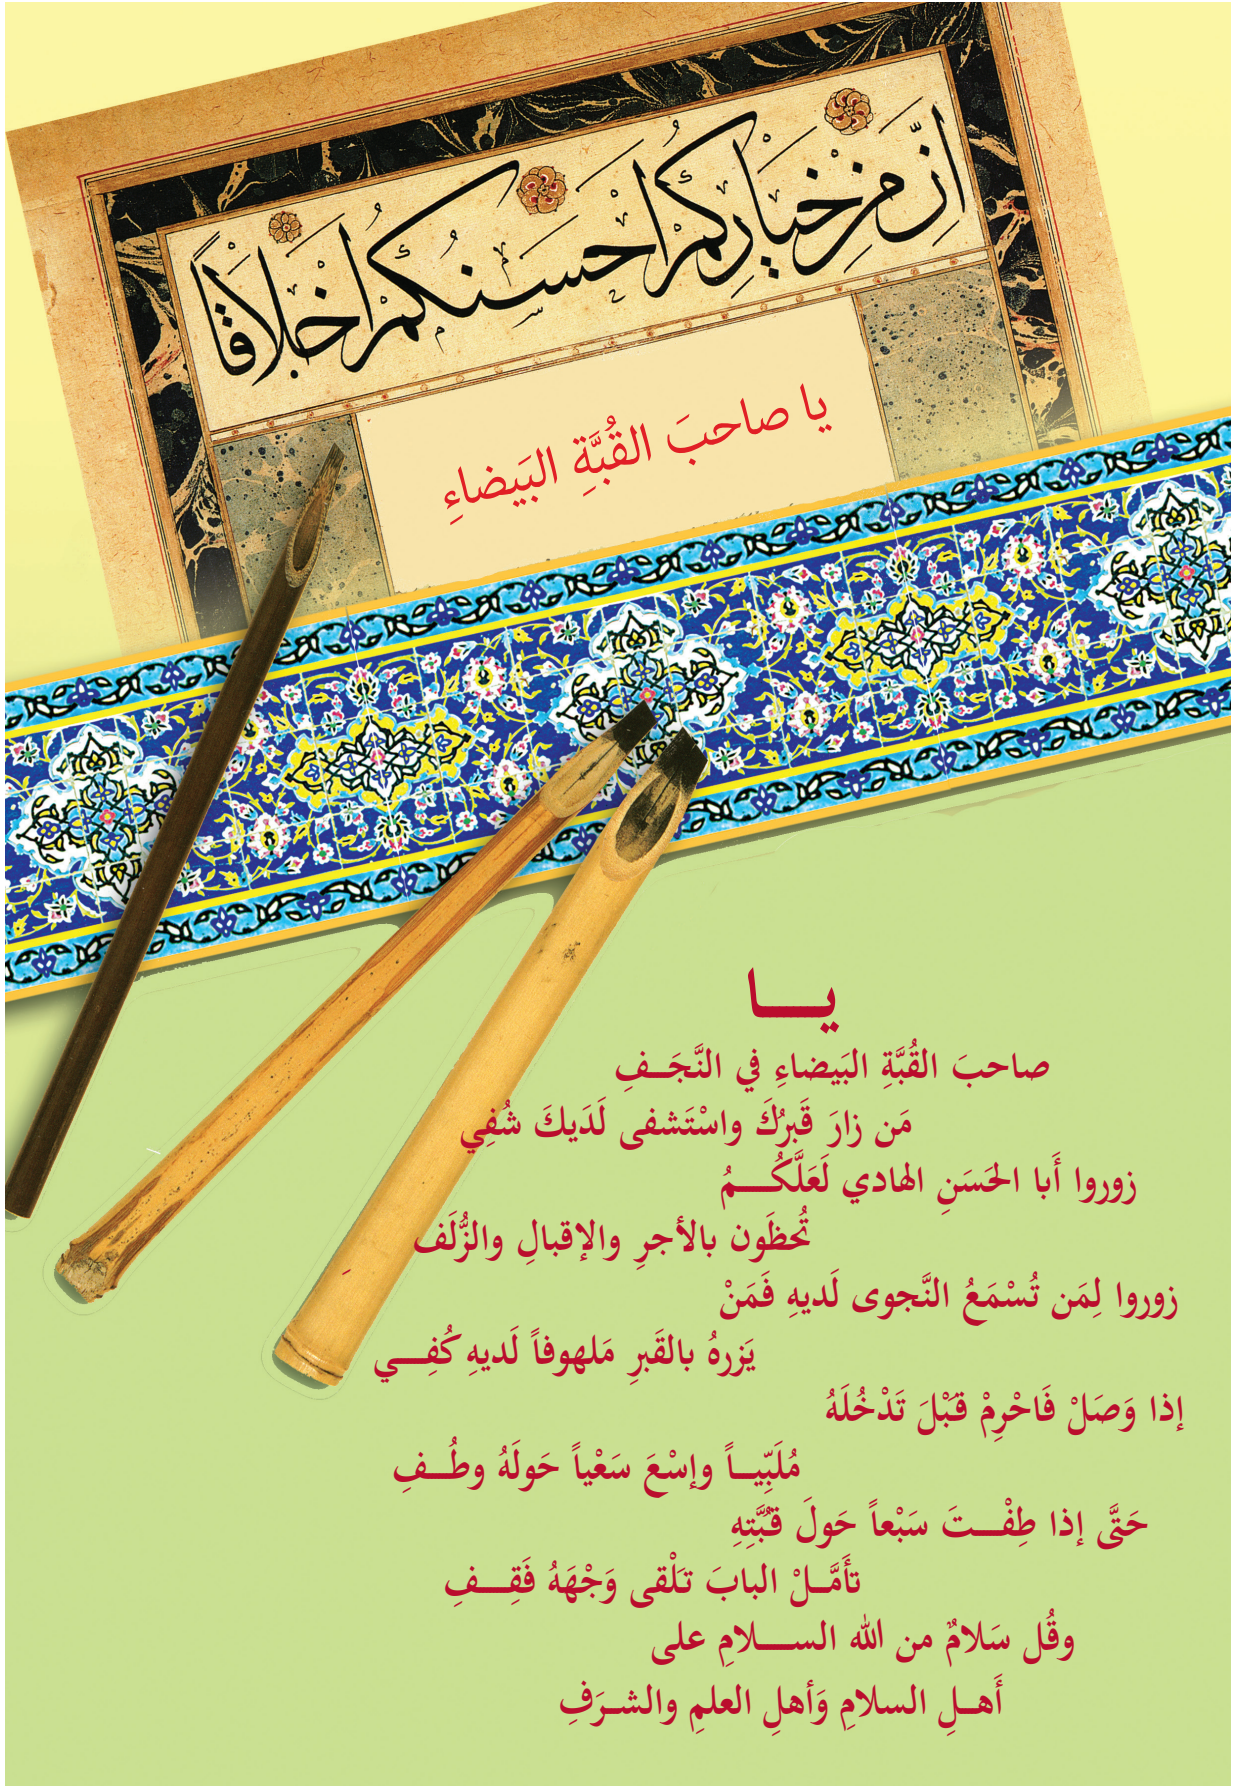 إنّ من خياركم احسنكم اخلاقًا
يا صاحبَ القُبَّةِ البَيضاءِ
يـــا
صاحبَ القُبَّةِ البَيضاءِ في النَّجَــفِ
مَن زارَ قَبرُكَ واسْتَشفى لَدَيكَ شُفِي
زوروا أَبا الحَسَنِ الهادي لَعَلَّكُـــمُ
تُحظَون بالأجرِ والإقبالِ والزُّلَف
زوروا لِمَن تُسْمَعُ النَّجوى لَديهِ فَمَنْ
يَزرهُ بالقَبرِ مَلهوفاً لَديهِ كُفِـــي
إذا وَصَلْ فَاحْرِمْ قَبْلَ تَدْخُلَهُ
مُلَبِّيــاً وإسْعَ سَعْياً حَولَهُ وطُــفِ
حَتَّى إذا طِفْـــتَ سَبْعاً حَولَ قُبَّتِهِ
تأَمَّــلْ البابَ تَلْقى وَجْهَهُ فَقِــفِ
وقُل سَلامٌ من الله الســـلامِ على
أَهــلِ السلامِ وَأهلِ العلمِ والشـرَفِ